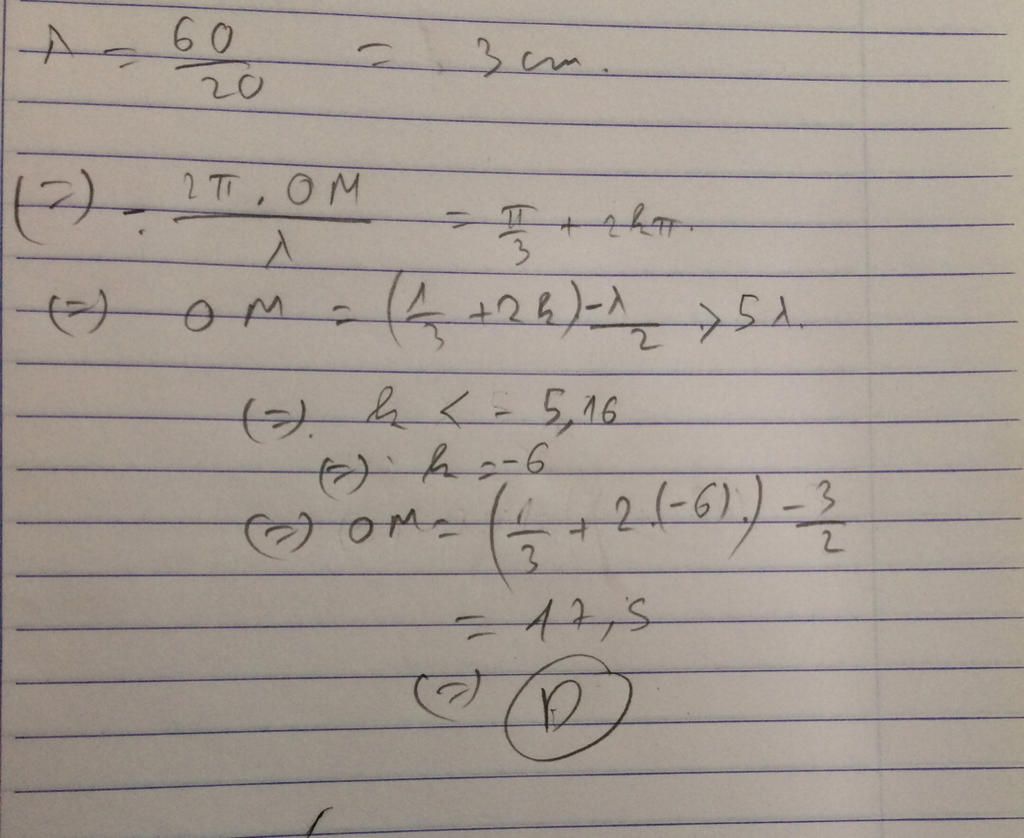 λ = 60/20 = 3 cm.
(=) - 2π.OM/λ = π/3 + 2kπ.
(=) OM = (1/3 + 2k) -λ/2 > 5λ.
(=). k < - 5,16
(=) k = -6
(=) OM = (1/3 + 2.(-6).) -3/2
= 17,5
(=) D